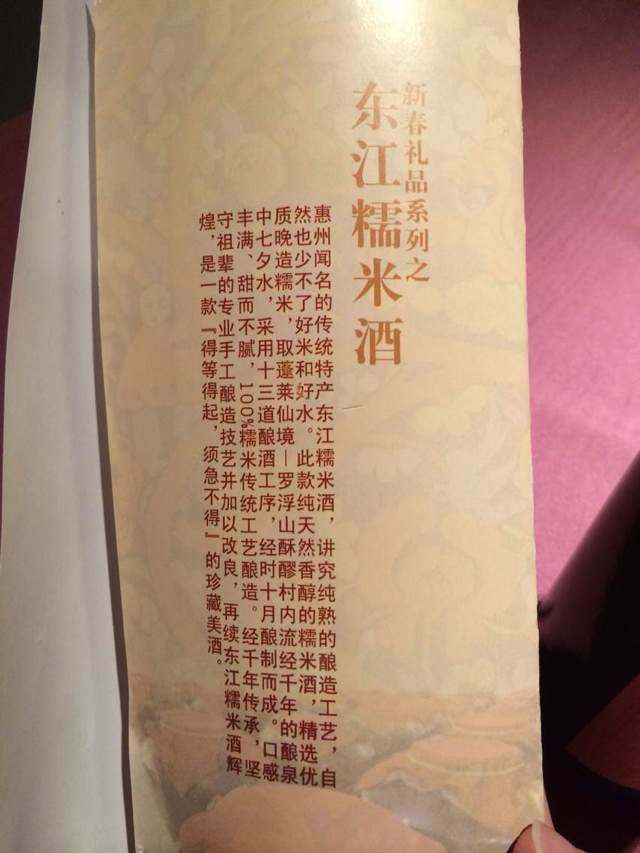 新春礼品系列之
东江糯米酒
惠州闻名的传统特产东江糯米酒，讲究纯熟的酿造工艺，自
然也少不了好米和好水。此款纯天然香醇的糯米酒，精选优
质晚造糯米，取蓬莱仙境—罗浮山酥醪村内流经千年的酿泉
中七夕水，采用十三道酿酒工序，经时十月酿制而成。口感
丰满、甜而不腻，100%糯米传统工艺酿造。经千年传承，坚
守祖辈的专业手工酿造技艺并加以改良，再续东江糯米酒辉
煌，是一款『得等得起，须急不得』的珍藏美酒。